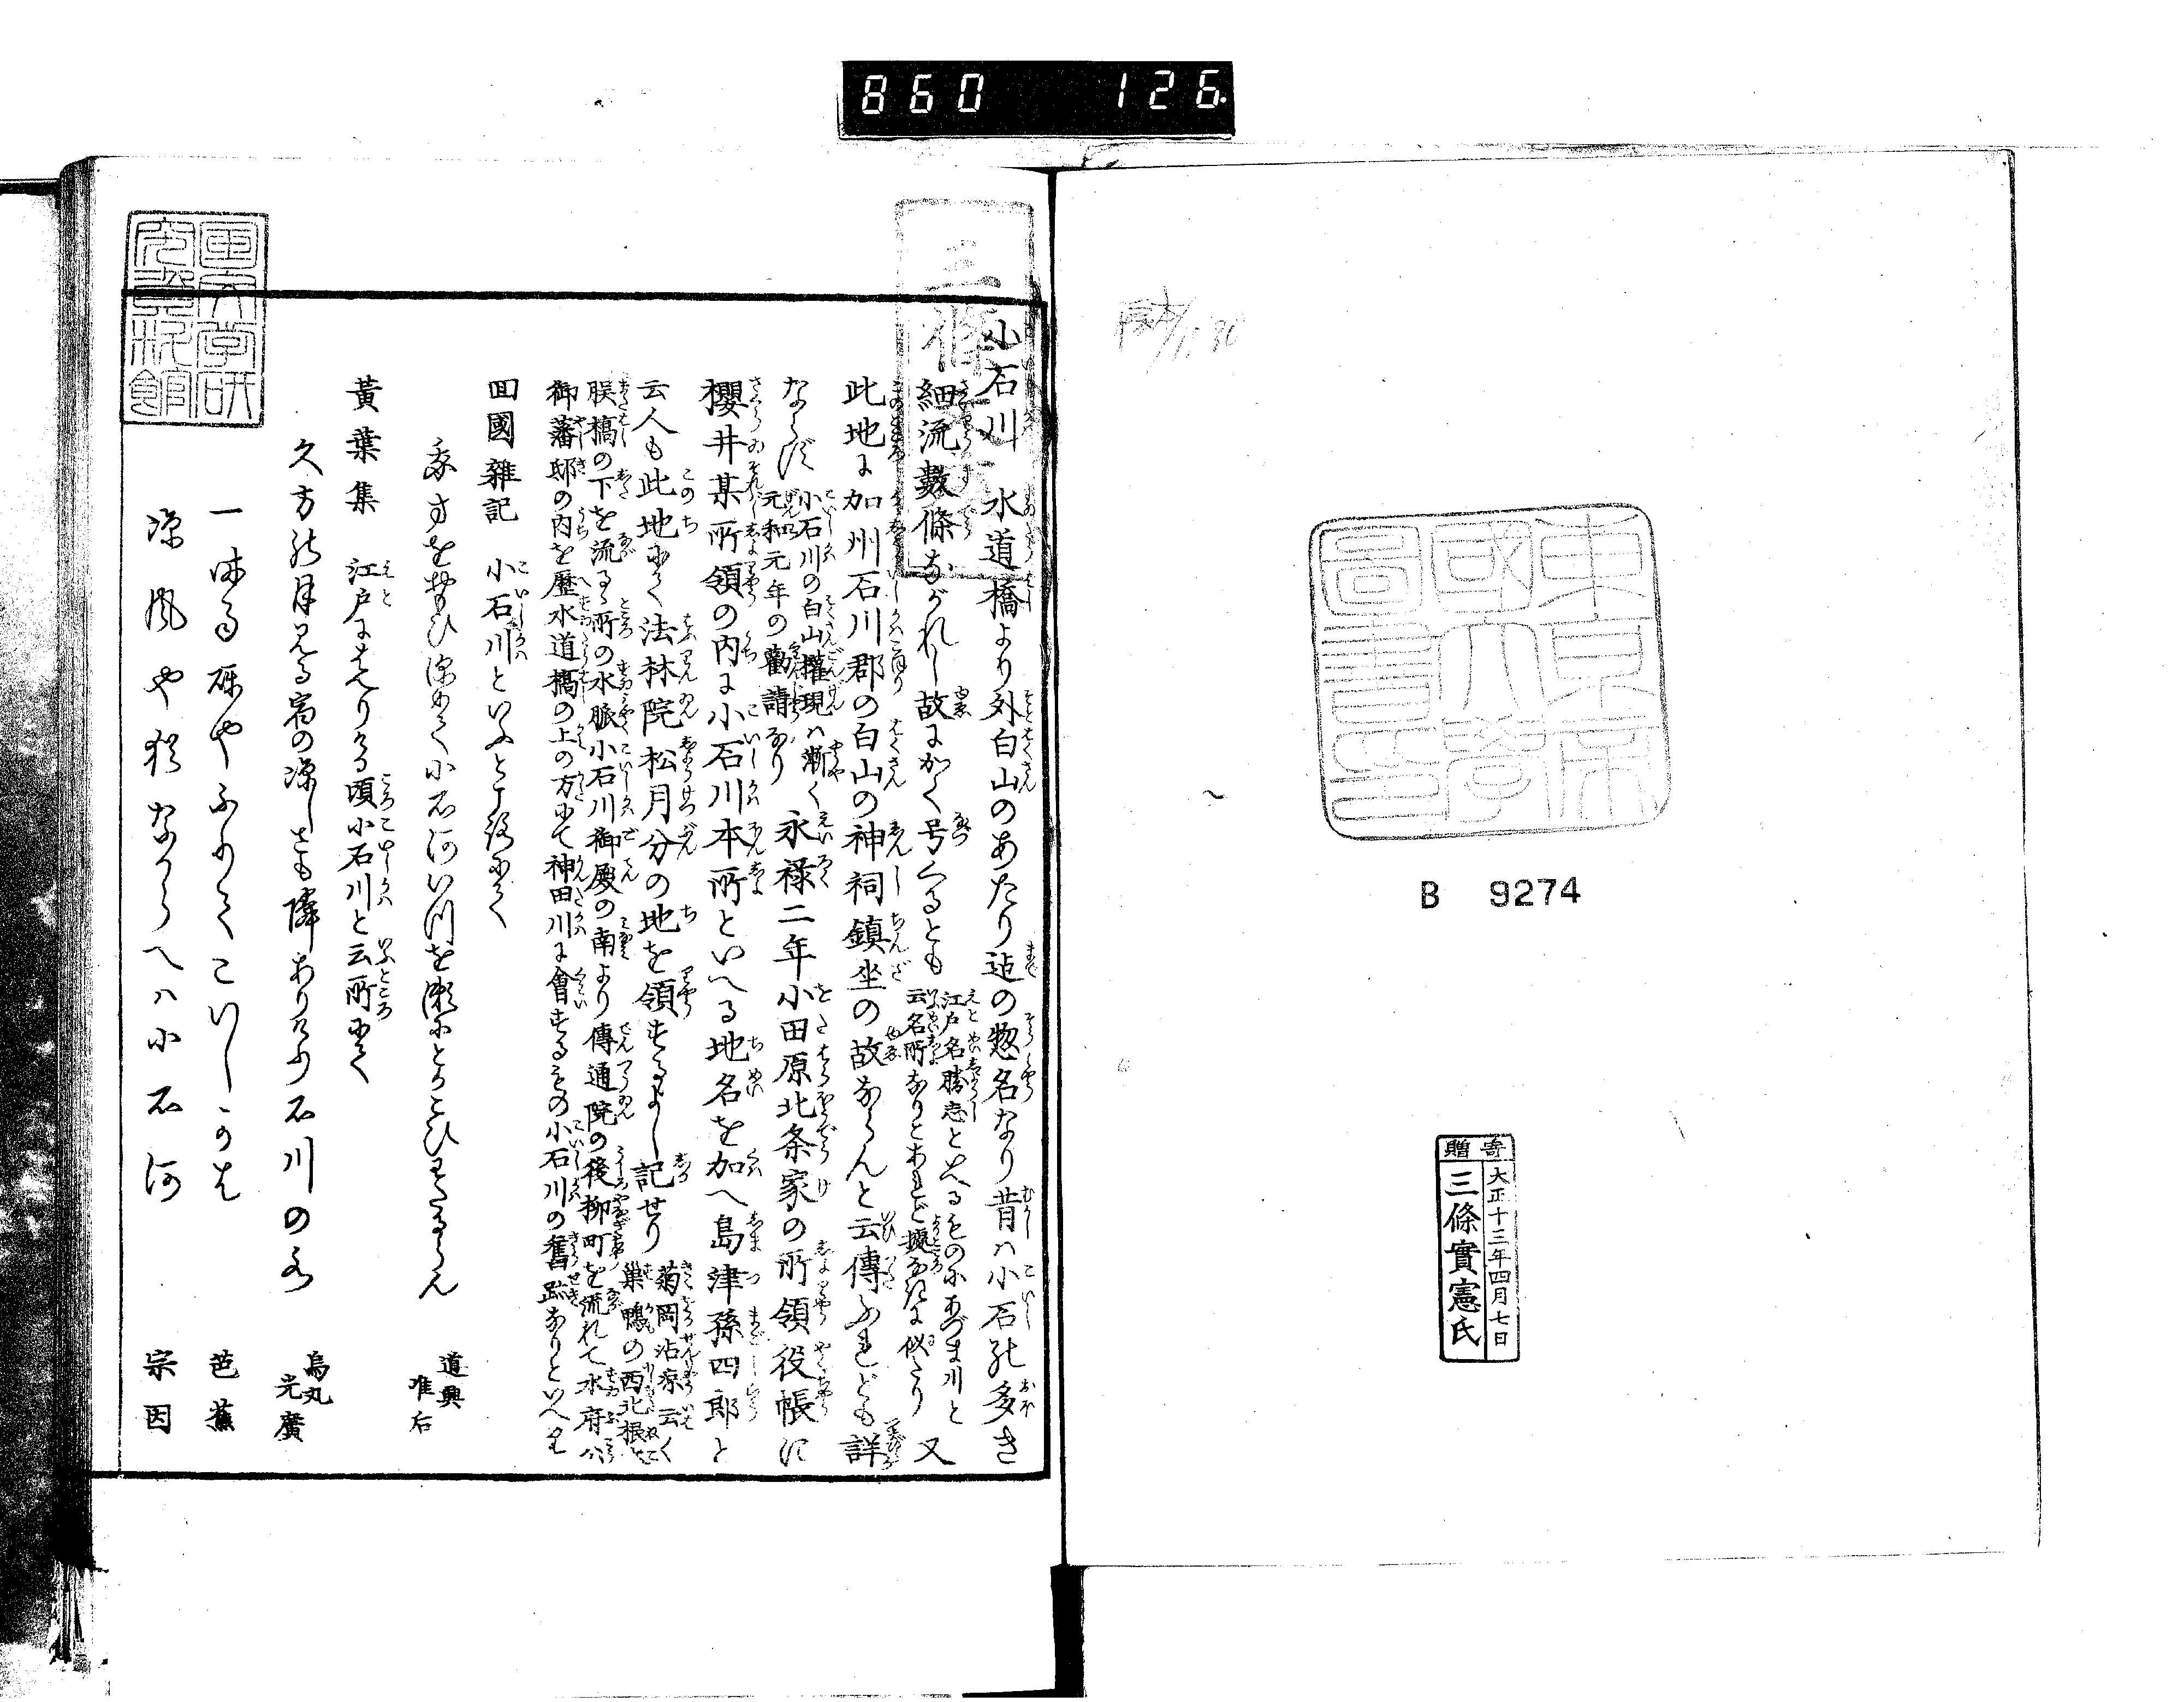 860 126
東京帝國大學圖書印
B 9274
寄贈
大正十三年四月七日
三條實憲氏
小石川 水道橋より外白山のあたり迠の惣名なり昔ハ小石の多き
細流數條ながれし故にかく号くるとも
江戸名勝志といへるものにあづま川と
云名所なりとあれど據なきに似たり
又
此地に加州石川郡の白山の神祠鎮坐の故ならんと云傳ふれども詳
ならず
小石川の白山權現ハ漸く
元和元年の勸請なり
永禄二年小田原北条家の所領役帳に
櫻井某所領の内に小石川本所といへる地名を加へ島津孫四郎と
云人も此地にて法林院松月分の地を領するよし記せり
菊岡沾凉云く
巣鴨の西北根
橋の下を流るゝ所の水脈小石川御殿の南より傳通院の後柳町を流れて水府公
御藩邸の内を歴水道橋の上の方にて神田川に會するもの小石川の舊跡なりといへり
回國雜記 小石川といふところにて
我方を おもひ深めて小石河いつを瀬にとかこひわたるらん
道興
准后
黄葉集 江戸にまへりける頃小石川と云所にて
久方の月見る宿の凉しさも隣ありけり石川の水
烏丸
光廣
一しぐれ礫やふりてこいしかは
芭蕉
凉風や
ならへハ小石河
宗因